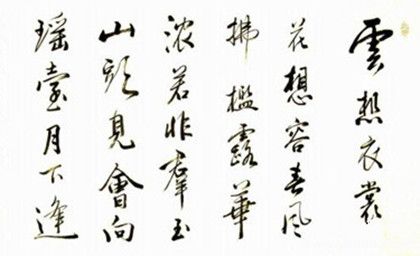 雲想衣裳
花想容春風
拂檻露華
浓若非羣玉
山頭見會向
瑶臺月下逢